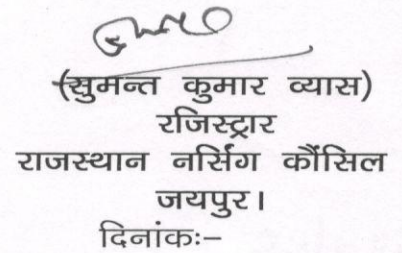 (सुमन्त कुमार व्यास)
रजिस्ट्रार
राजस्थान नर्सिंग कौंसिल
जयपुर।
दिनांकः–